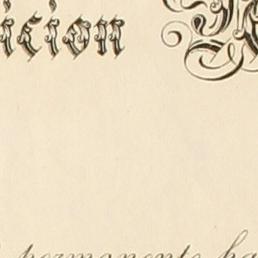 icion
permanente ha